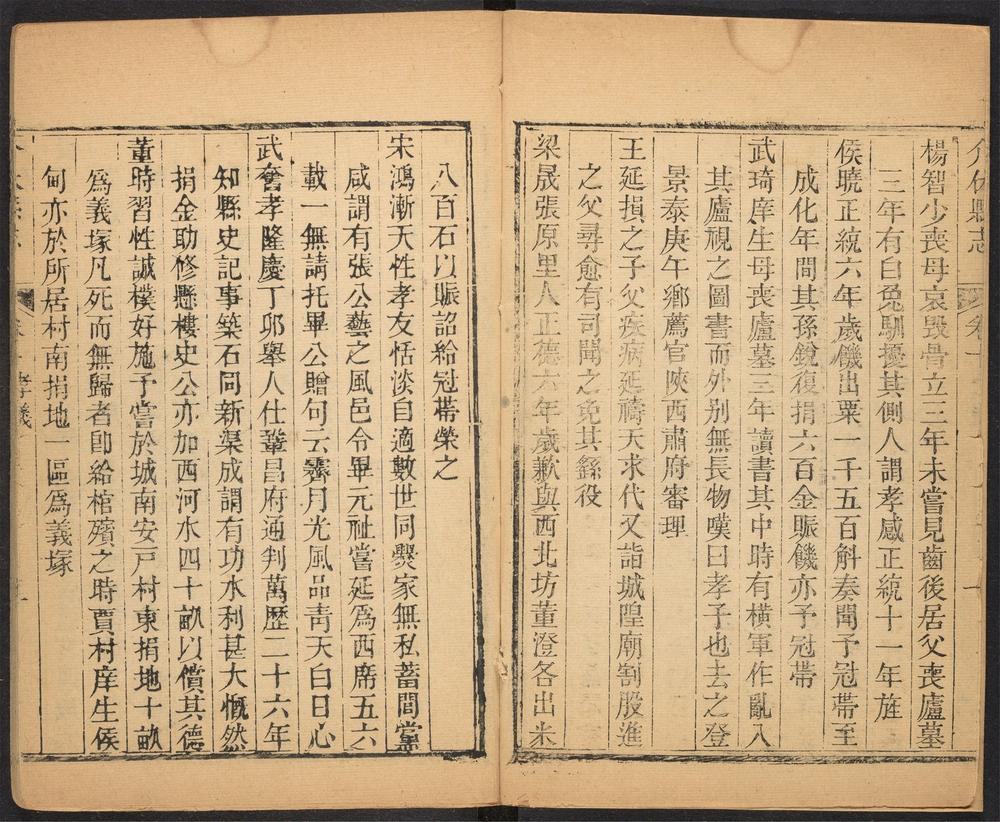 介休縣志
卷十
楊智少喪母哀毀骨立三年未嘗見齒後居父喪廬墓
三年有白兔馴擾其側人謂孝感正統十一年旌
侯曉正統六年歲饑出粟一千五百斛奏聞予冠帶至
成化年間其孫銳復捐六百金賑饑亦予冠帶
武琦庠生母喪廬墓三年讀書其中時有橫軍作亂入
其廬視之圖書而外別無長物嘆曰孝子也去之登
景泰庚午鄉薦官陝西肅府審理
王延損之子父疾病延禱天求代又詣城隍廟割股進
之父尋愈有司聞之免其繇役
梁晟張原里人正德六年歲歉與西北坊董澄各出米
八百石以賑詔給冠帶榮之
宋鴻漸天性孝友恬淡自適數世同爨家無私蓄閭黨
咸謂有張公藝之風邑令畢元祉嘗延為西席五六
載一無請托畢公贈句云霽月光風品青天白日心
武奮孝隆慶丁卯舉人仕鞏昌府通判萬歷二十六年
知縣史記事築石同新渠成謂有功水利甚大慨然
捐金助修縣樓史公亦加西河水四十畝以償其德
董時習性誠樸好施予嘗於城南安戸村東捐地十畝
為義塚凡死而無歸者卽給棺殯之時賈村庠生侯
甸亦於所居村南捐地一區為義塚
孝義